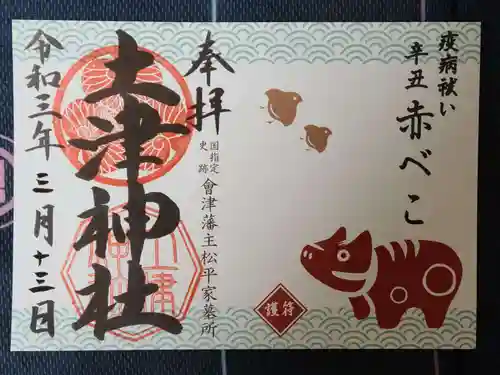 疫病祓い
辛丑 赤べこ
奉拝
国指定
史跡
會津藩主松平家墓所
土津神社
令和三年三月十三日
護符